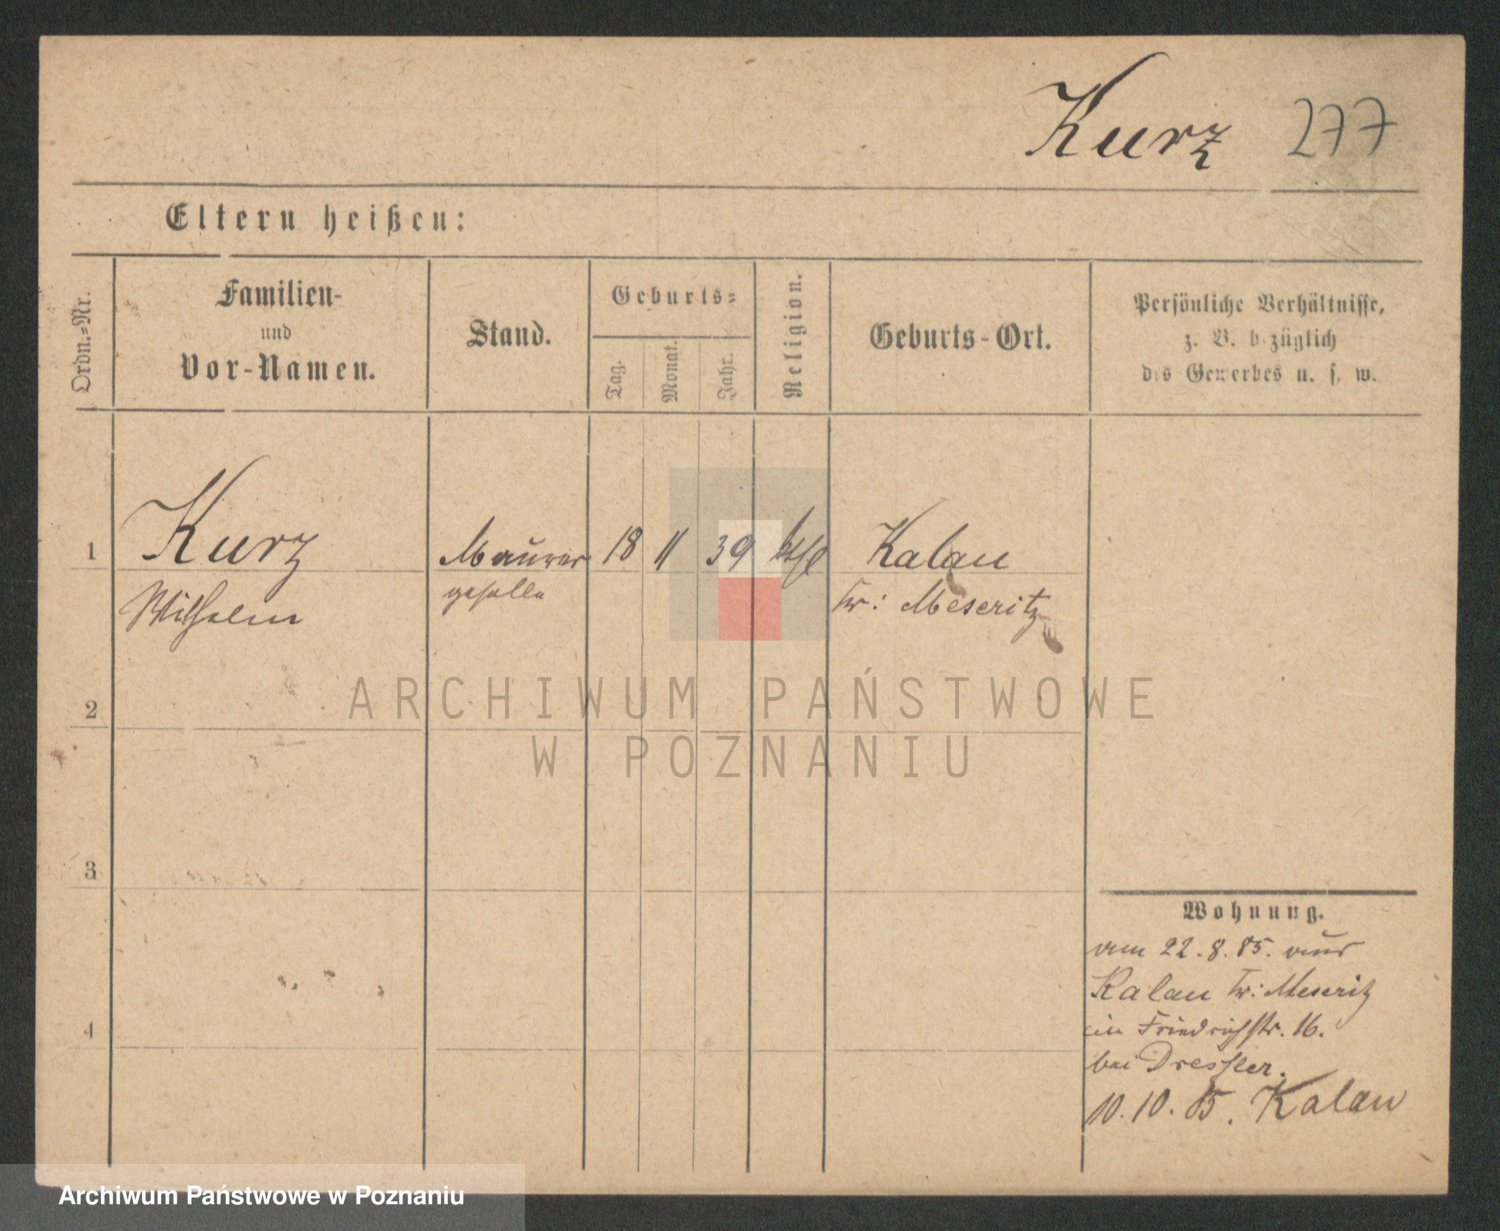 Kurz 277
Eltern heißen:
Ordn.-Nr.
Familien-
und
Vor-Namen.
Stand.
Geburts-
Tag.
Monat.
Jahr.
Religion.
Geburts-Ort.
Persönliche Verhältnisse,
z. B. bezüglich
des Gewerbes u. s. w.
1 Kurz Maurer 18 11 39 Kalau
Wilhelm geselle Kr: Meseritz
2
3
4
Wohnung.
am 22.8.85. aus
Kalau Kr: Meseritz
in Friedrichstr. 16.
bei Dressler.
10.10.85. Kalau
ARCHIWUM PAŃSTWOWE
W POZNANIU
Archiwum Państwowe w Poznaniu